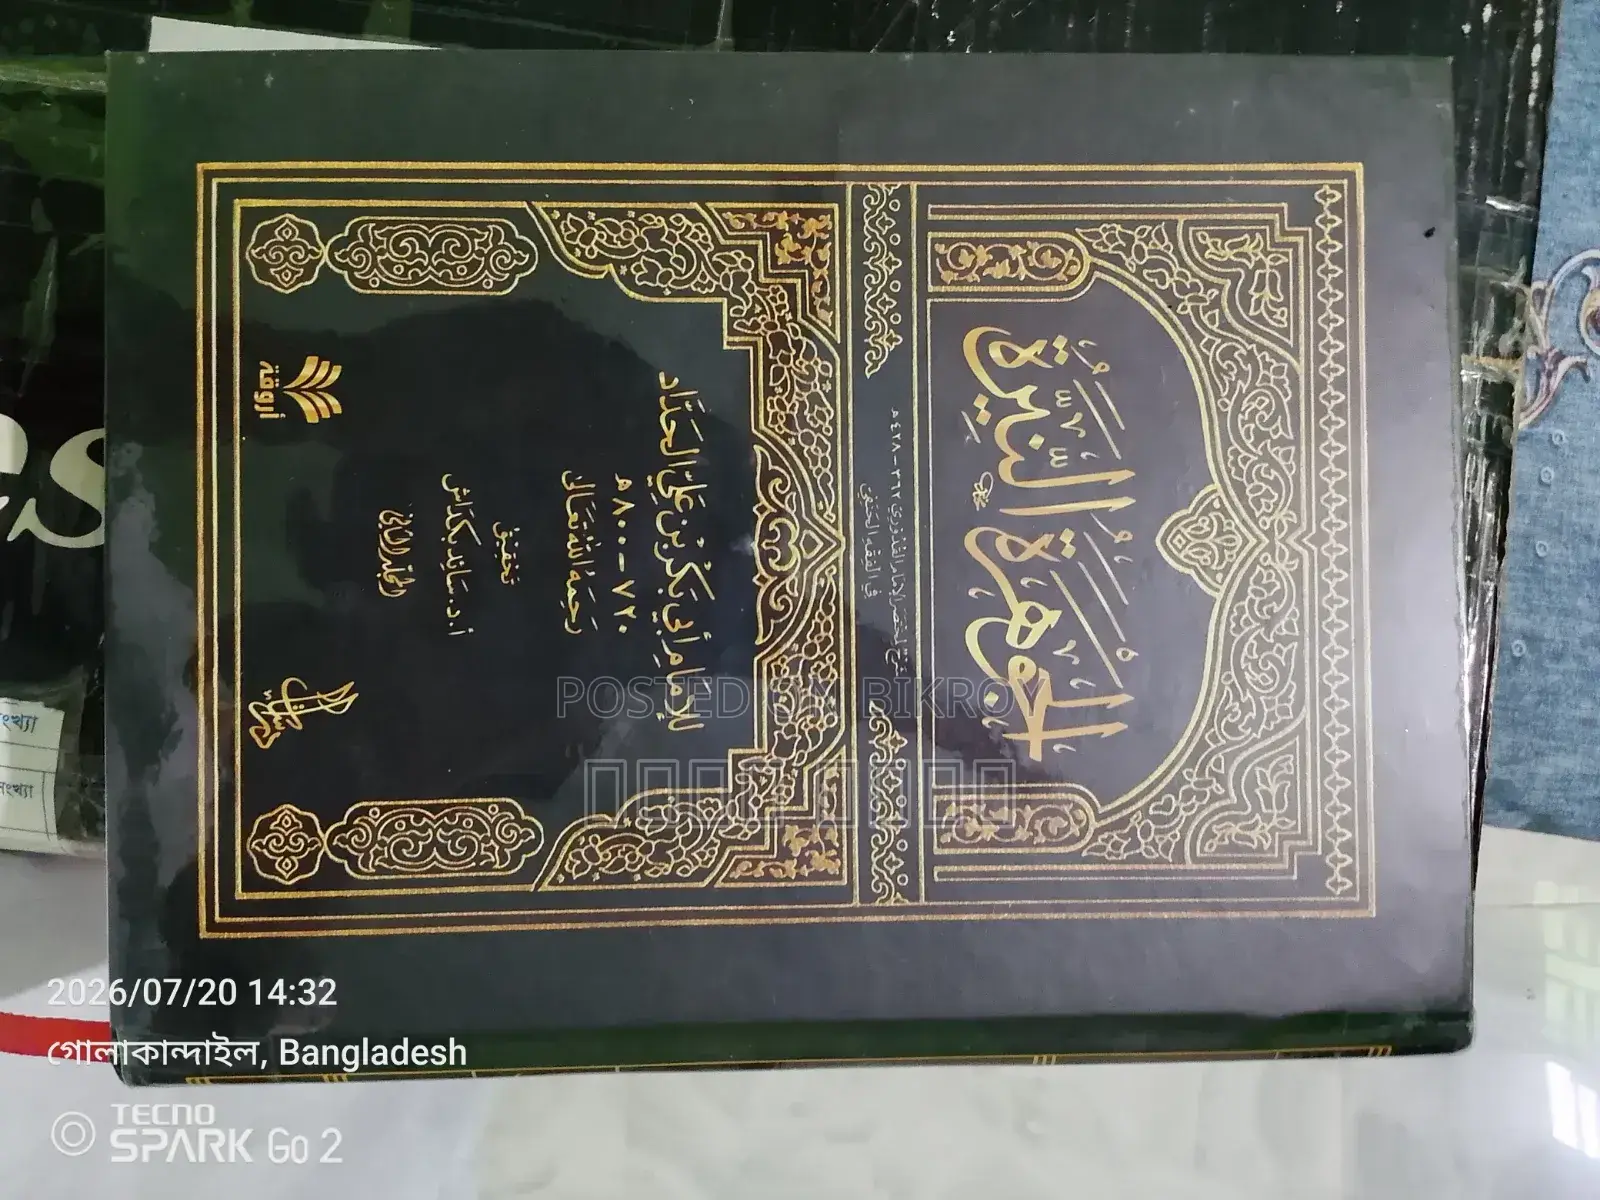 الجَوْهَرَةُ النَّيِّرَةُ
شرح مختصر الإمام القدوري ٣٦٢ - ٤٢٨ هـ
في الفقه الحنفي
للإمَامِ أَبِي بَكْرِ بْنِ عَلِيٍّ الحَدَّاد
٧٢٠ - ٨٠٠ هـ
رَحِمَهُ اللهُ تَعَالَى
تحقيق
أ. د. سَائِد بَكْدَاش
المجلد الثاني
أروقة
POSTED ON BIKROY
2026/07/20 14:32
গোলাকান্দাইল, Bangladesh
TECNO
SPARK Go 2
es
সংখ্যা
সংখ্যা